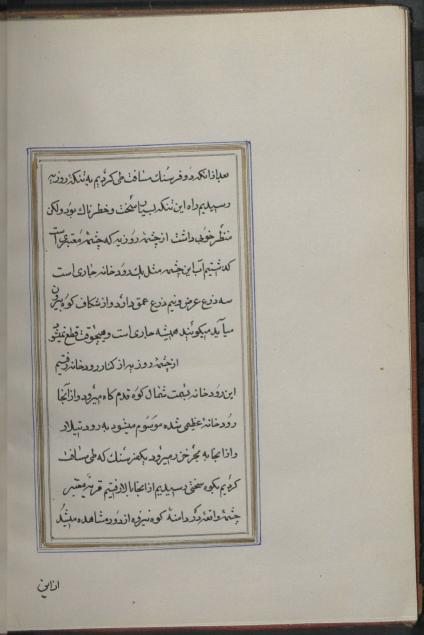 بعد از آنکه دو فرسنك مسافت طی کردیم به تنکهٔ روز به
رسیدیم راه این تنکه بسیار سخت و خطرناك بود ولکن
منظر خوبی داشت از چشمهٔ روز به که چشمهٔ معتبری است
کذشتیم آب این چشمه مثل یك رودخانه جاری است
سه ذرع عرض و نیم ذرع عمق دارد و از شکاف کوه بیرون
میآید میکویند همیشه جاری است و هیچوقت قطع نمیشود
از چشمهٔ روز به از کنار رودخانه رفتیم
این رودخانه بسمت شمال کوه قدم کاه میرود و از آنجا
رودخانهٔ عظیمی شده موسوم میشود به رود تیلار
و از آنجا به بحر خزر میرود یکفرسنك که طی مسافت
کردیم بکوه سختی رسیدیم از آنجا بالا رفتیم قریهٔ معتبر
چشمه واقعه در دامنهٔ کوه نیزوه از دور مشاهده میشد
از این